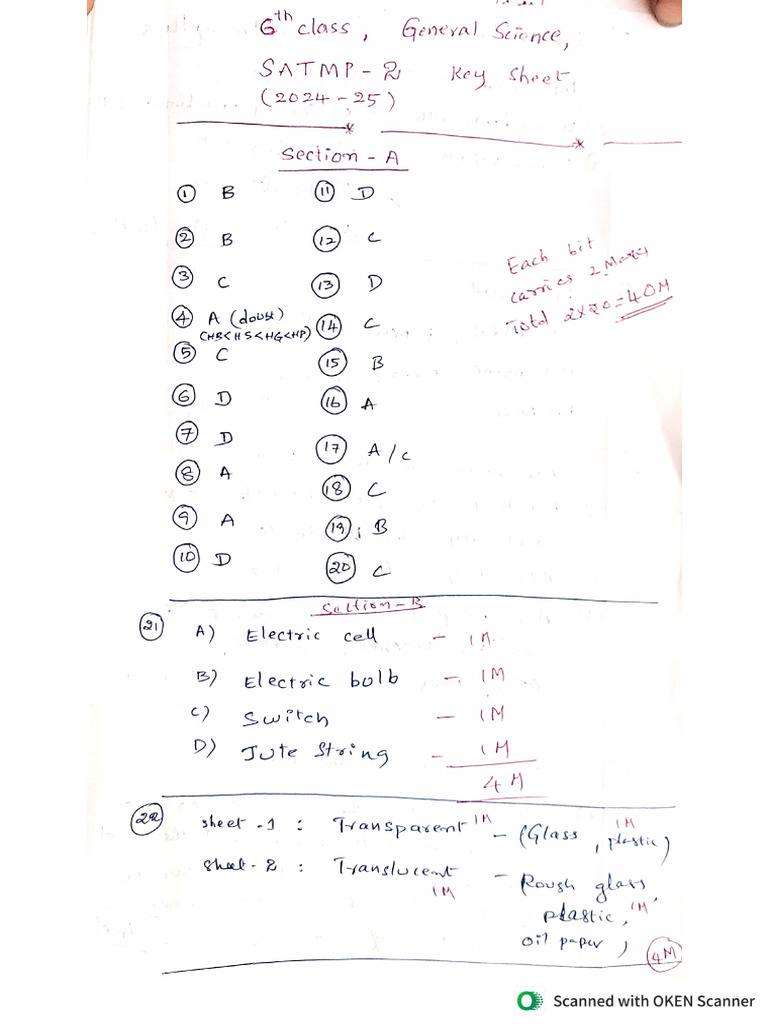 6th class, General Science,
SATMP - 2 Key Sheet
(2024-25)
Section - A
① B
② B
③ C
④ A (doubt)
(HB<HS<HG<HP)
⑤ C
⑥ D
⑦ D
⑧ A
⑨ A
⑩ D
⑪ D
⑫ C
⑬ D
⑭ C
⑮ B
⑯ A
⑰ A/C
⑱ C
⑲ B
⑳ C
Each bit
carries 2 Marks
Total 2x20=40M
Section-B
㉑ A) Electric cell - 1M
B) Electric bulb - 1M
C) Switch - 1M
D) Jute String - 1M
4M
㉒ sheet-1 : Transparent 1M - (Glass, plastic) 1M
sheet-2 : Translucent 1M - Rough glass,
plastic, 1M
oil paper)
4M
Scanned with OKEN Scanner